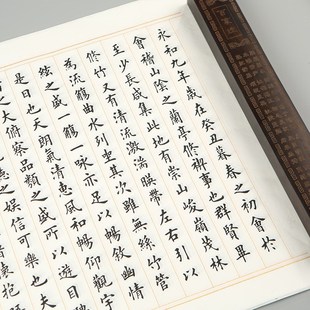 永和九年歲在癸丑暮春之初會於
會稽山陰之蘭亭脩禊事也群賢畢
至少長咸集此地有崇山峻嶺茂林
脩竹又有清流激湍暎帶左右引以
為流觴曲水列坐其次雖無絲竹管
絃之盛一觴一詠亦足以暢敘幽情
是日也天朗氣清惠風和暢仰觀宇
之大俯察品類之盛所以遊目
之娛信可樂也夫
懷抱